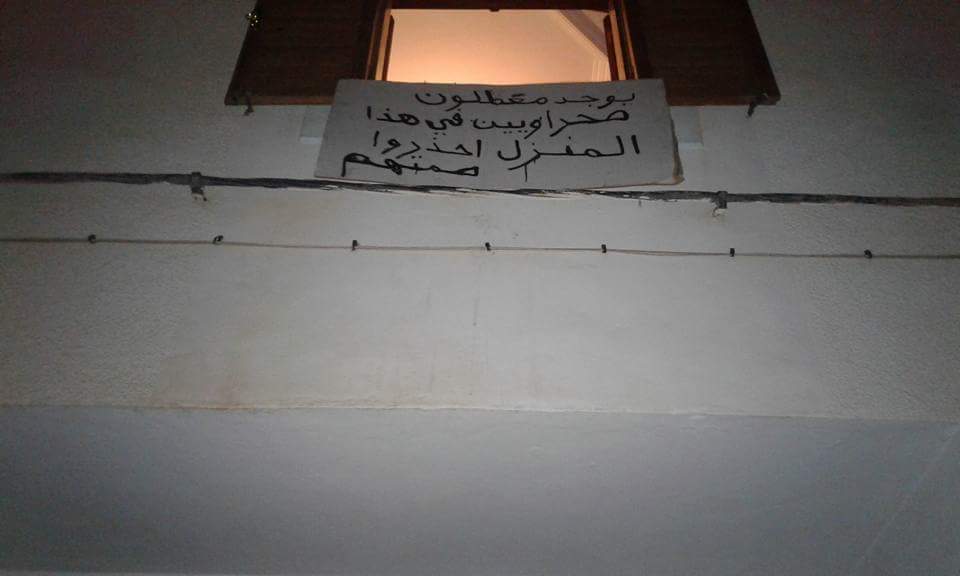 يوجد معطلون
صحراويين في هذا
المنزل احذروا
منهم